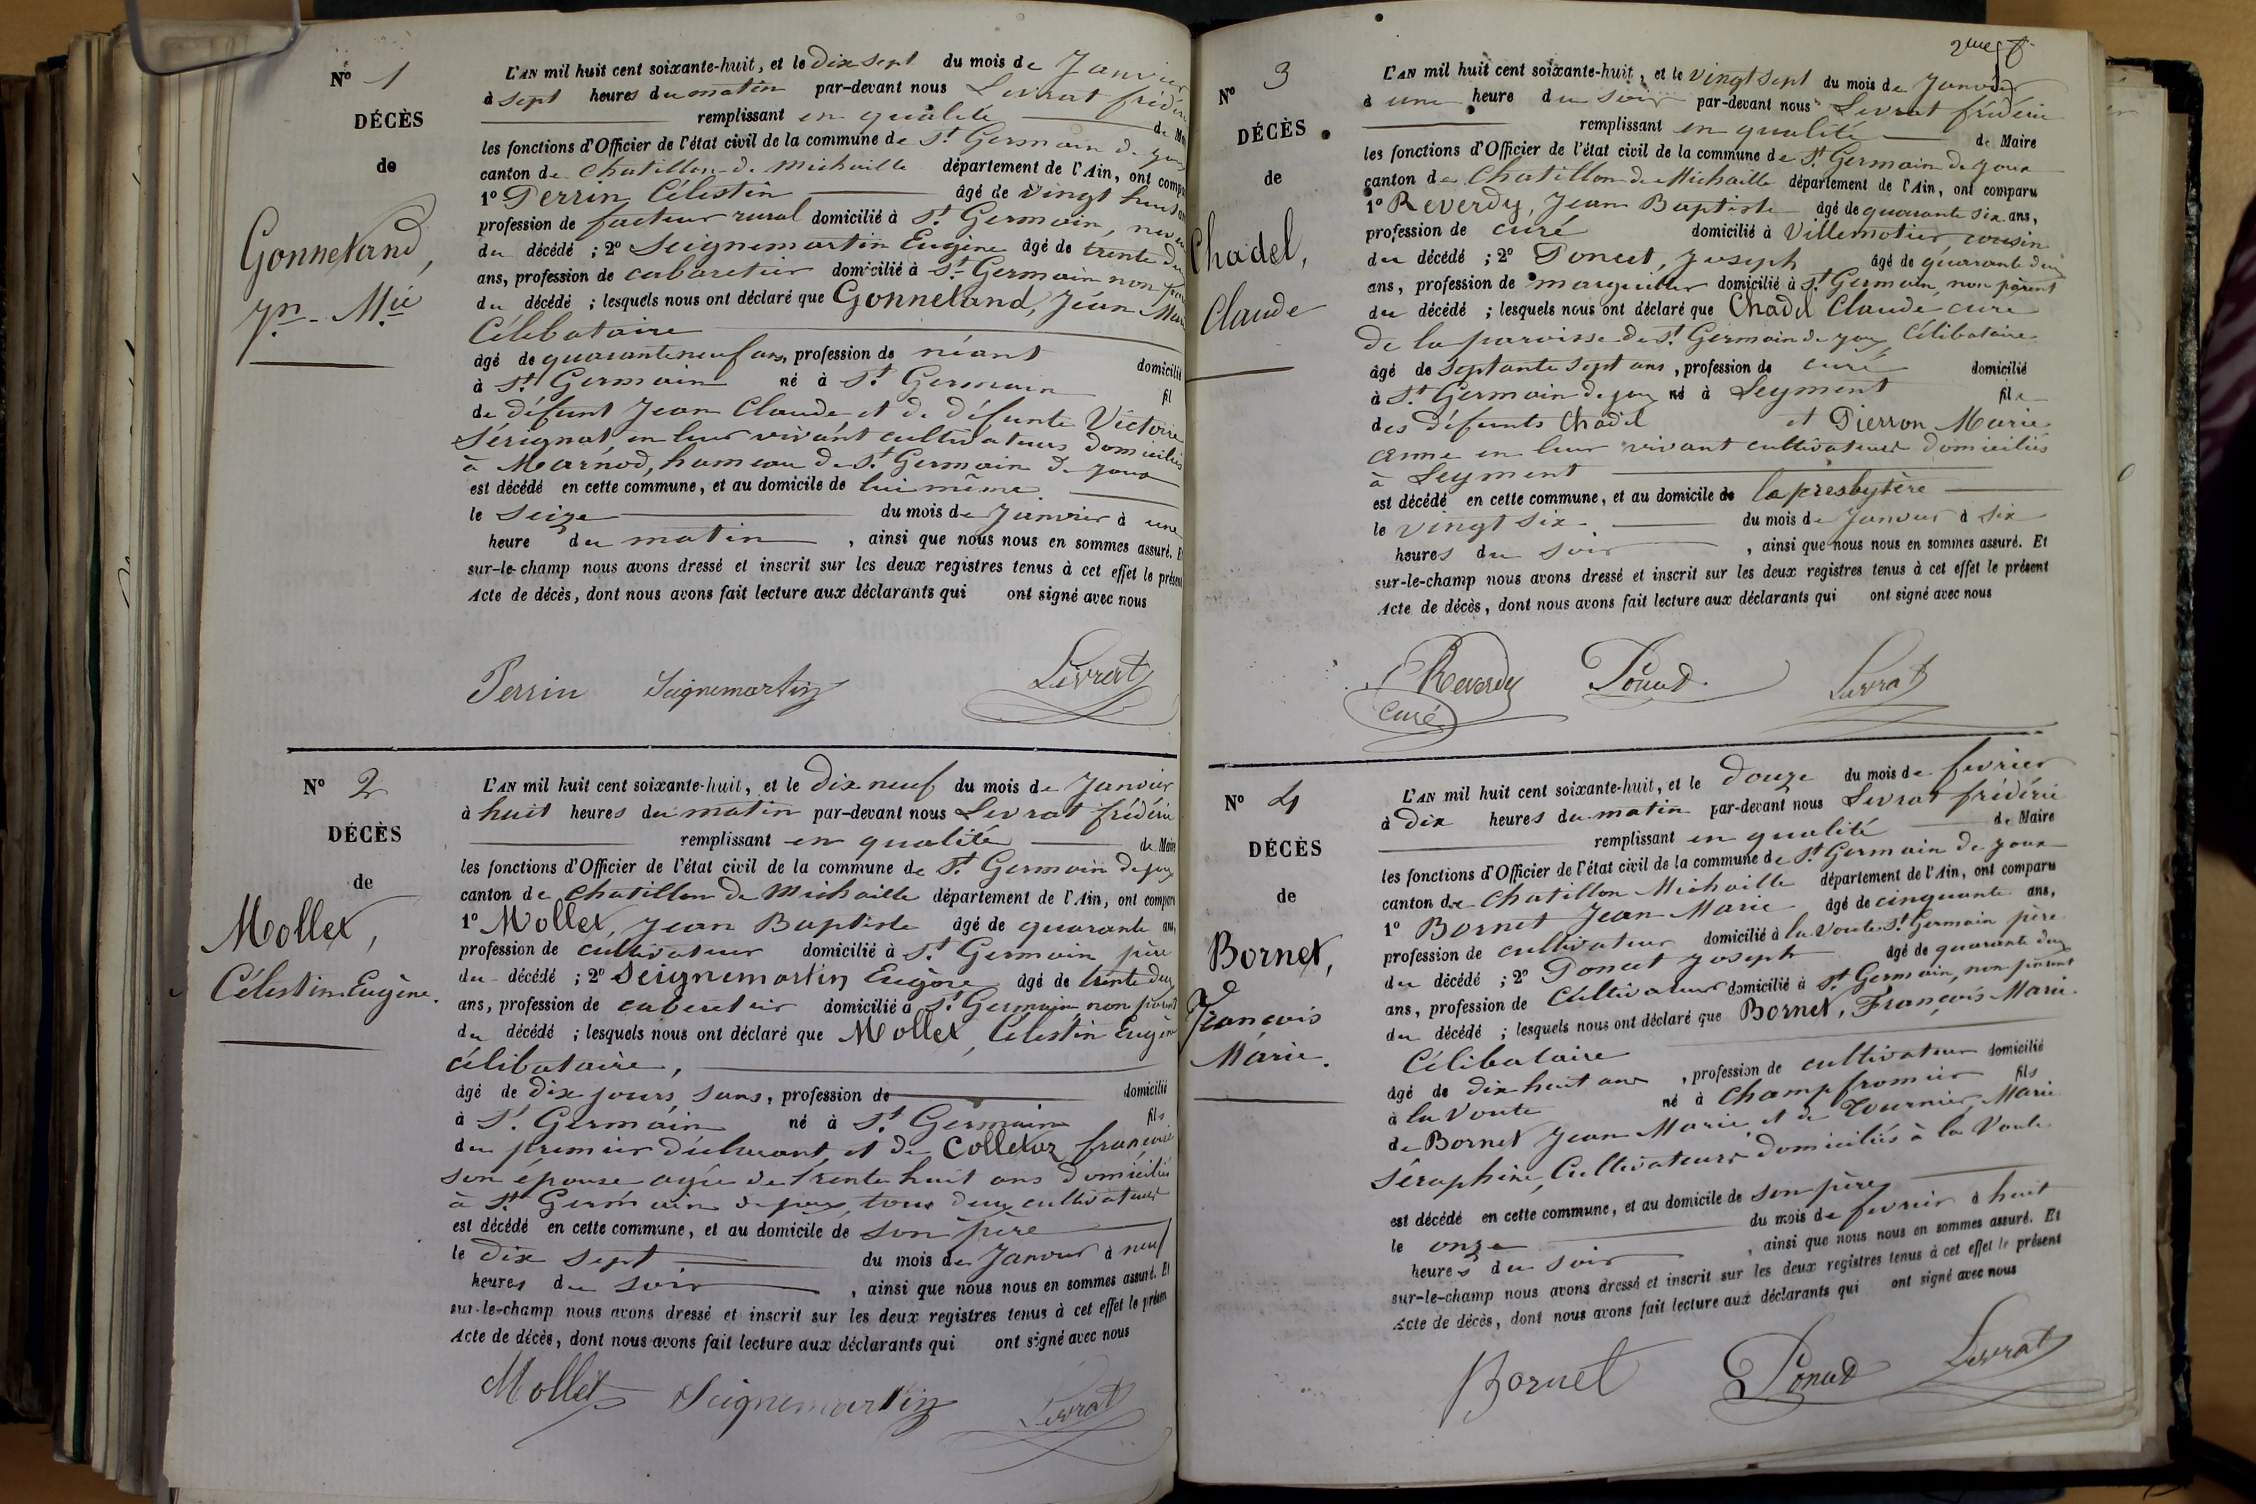 N° 1
DÉCÈS
de
Gonnetand,
Jn. Mie
L'AN mil huit cent soixante-huit, et le dix sept du mois de Janvier
à sept heures du matin par-devant nous Levrat frédéric
remplissant en qualité de Maire
les fonctions d'Officier de l'état civil de la commune de St Germain de Joux
canton de Chatillon de Michaille département de l'Ain, ont comparu
1° Perrin Célestin âgé de vingt huit ans
profession de facteur rural domicilié à St Germain, neveu
du décédé ; 2° Seignemartin Eugène âgé de trente deux
ans, profession de cabaretier domicilié à St Germain non parent
du décédé ; lesquels nous ont déclaré que Gonnetand, Jean Marie
Célibataire
âgé de quarante neuf ans, profession de néant domicilié
à St Germain né à St Germain fil
de défunt Jean Claude et de défunte Victoire
Sérignat en leur vivant cultivateurs domiciliés
à Marnod, hameau de St Germain de Joux
est décédé en cette commune, et au domicile de lui même.
le Seize du mois de Janvier à une
heure du matin, ainsi que nous nous en sommes assuré. Et
sur-le-champ nous avons dressé et inscrit sur les deux registres tenus à cet effet le présent
Acte de décès, dont nous avons fait lecture aux déclarants qui ont signé avec nous
Perrin Seignemartin Levrat
N° 2
DÉCÈS
de
Mollet,
Célestin Eugène.
L'AN mil huit cent soixante-huit, et le dix neuf du mois de Janvier
à huit heures du matin par-devant nous Levrat frédéric
remplissant en qualité de Maire
les fonctions d'Officier de l'état civil de la commune de St Germain de Joux
canton de Chatillon de Michaille département de l'Ain, ont comparu
1° Mollet, Jean Baptiste âgé de quarante ans,
profession de cultivateur domicilié à St Germain père
du décédé ; 2° Seignemartin Eugène âgé de trente deux
ans, profession de cabaretier domicilié à St Germain non parent
du décédé ; lesquels nous ont déclaré que Mollet, Célestin Eugène
célibataire,
âgé de dix jours, sans, profession de domicilié
à St Germain né à St Germain fils
du premier déclarant, et de Colletaz françoise
son épouse agée de trente huit ans domiciliés
à St Germain de Joux, tous deux cultivateurs
est décédé en cette commune, et au domicile de son père
le dix sept du mois de Janvier à neuf
heures du soir, ainsi que nous nous en sommes assuré. Et
sur-le-champ nous avons dressé et inscrit sur les deux registres tenus à cet effet le présent
Acte de décès, dont nous avons fait lecture aux déclarants qui ont signé avec nous
Mollet Seignemartin Levrat
2me f
N° 3
DÉCÈS
de
Chadel,
Claude
L'AN mil huit cent soixante-huit, et le vingt sept du mois de Janvier
à une heure du soir par-devant nous Levrat frédéric
remplissant en qualité de Maire
les fonctions d'Officier de l'état civil de la commune de St Germain de Joux
canton de Chatillon de Michaille département de l'Ain, ont comparu
1° Reverdy, Jean Baptiste âgé de quarante six ans,
profession de curé domicilié à Villemotier, cousin
du décédé ; 2° Poncet, Joseph âgé de quarante deux
ans, profession de marguillier domicilié à St Germain, non parent
du décédé ; lesquels nous ont déclaré que Chadel Claude cure
de la paroisse de St Germain de Joux, Célibataire
âgé de septante sept ans, profession de curé domicilié
à St Germain de Joux né à Leyment fils
des défunts Chadel et Pierron Marie
anne en leur vivant cultivateurs domiciliés
à Leyment
est décédé en cette commune, et au domicile de la presbytère
le vingt six du mois de Janvier à six
heures du soir, ainsi que nous nous en sommes assuré. Et
sur-le-champ nous avons dressé et inscrit sur les deux registres tenus à cet effet le présent
Acte de décès, dont nous avons fait lecture aux déclarants qui ont signé avec nous
Reverdy Poncet Levrat
curé
N° 4
DÉCÈS
de
Bornet,
François
Marie.
L'AN mil huit cent soixante-huit, et le douze du mois de fevrier
à dix heures du matin par-devant nous Levrat frédéric
remplissant en qualité de Maire
les fonctions d'Officier de l'état civil de la commune de St Germain de Joux
canton de Chatillon Michaille département de l'Ain, ont comparu
1° Bornet Jean Marie âgé de cinquante ans,
profession de cultivateur domicilié à la Voute St Germain père
du décédé ; 2° Poncet Joseph âgé de quarante deux
ans, profession de Cultivateur domicilié à St Germain, non parent
du décédé ; lesquels nous ont déclaré que Bornet, François Marie.
Célibataire
âgé de dix huit ans, profession de cultivateur domicilié
à la Voute né à Champfromier fils
de Bornet Jean Marie et de Tournier, Marie
Séraphine, Cultivateurs domiciliés à la Voute
est décédé en cette commune, et au domicile de son père
le onze du mois de fevrier à huit
heures du soir, ainsi que nous nous en sommes assuré. Et
sur-le-champ nous avons dressé et inscrit sur les deux registres tenus à cet effet le présent
Acte de décès, dont nous avons fait lecture aux déclarants qui ont signé avec nous
Bornet Poncet Levrat